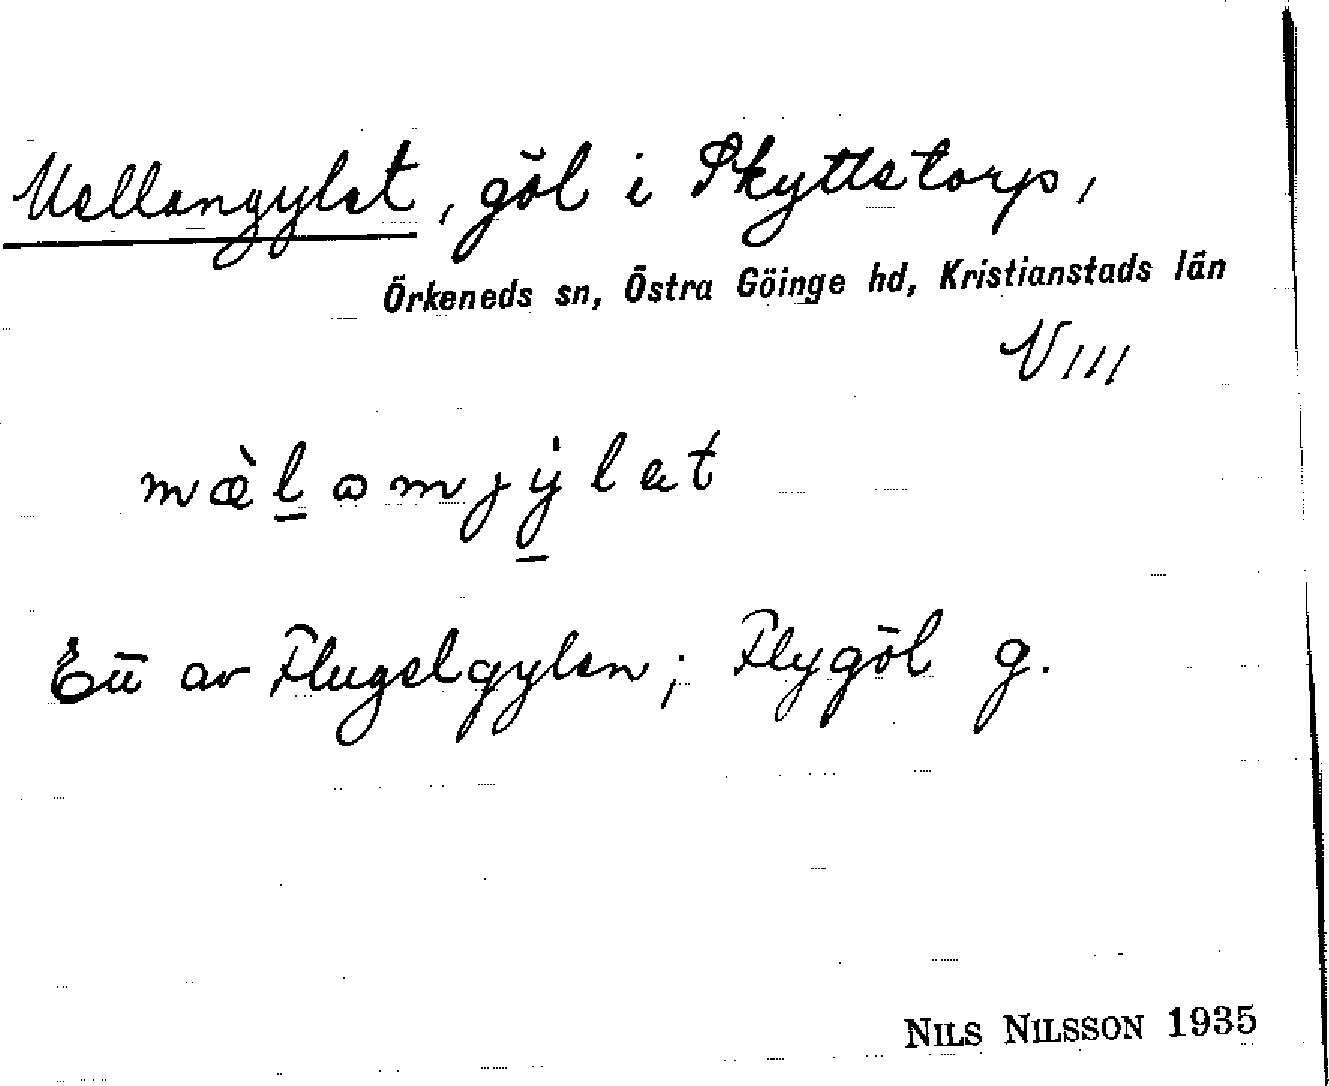 Mellangylet, göl i Skyttetorp,
Örkeneds sn, Östra Göinge hd, Kristianstads län
VIII
mæ̀lamjýlet
Ett av Flugelgylen; Flygöl g.
NILS NILSSON 1935